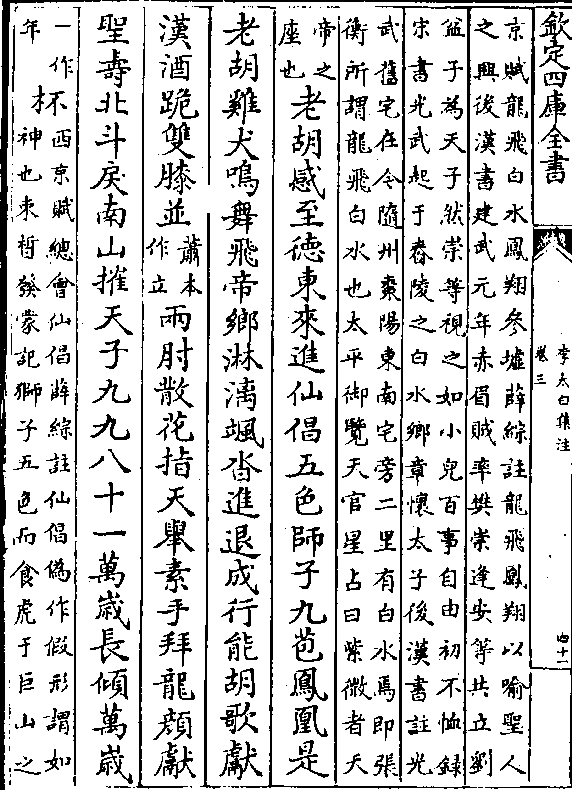 欽定四庫全書
李太白集注
卷三
四十一
京賦龍飛白水鳳翔參墟薛綜註龍飛鳳翔以喻聖人
之興後漢書建武元年赤眉賊率樊崇逢安等共立劉
盆子為天子然崇等視之如小兒百事自由初不恤録
宋書光武起于舂陵之白水鄉章懷太子後漢書註光
武舊宅在今隨州棗陽東南宅旁二里有白水焉即張
衡所謂龍飛白水也太平御覽天官星占曰紫微者天
帝之
座也
老胡感至德東來進仙倡五色師子九苞鳳凰是
老胡雞犬鳴舞飛帝鄉淋漓颯沓進退成行能胡歌獻
漢酒跪雙膝並
蕭本
作立
兩肘散花指天舉素手拜龍顔獻
聖壽北斗戾南山摧天子九九八十一萬歲長傾萬歲
一作不西京賦總會仙倡薛綜註仙倡偽作假形謂如
年
杯
神也束晳發蒙記獅子五色而食虎于巨山之